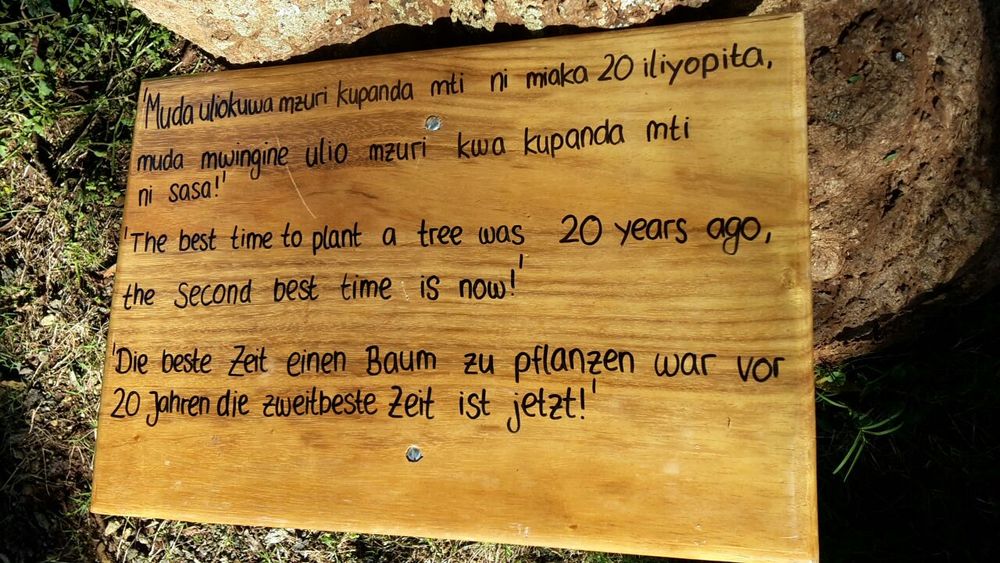 'Muda uliokuwa mzuri kupanda mti ni miaka 20 iliyopita,
muda mwingine ulio mzuri kwa kupanda mti
ni sasa!'
'The best time to plant a tree was 20 years ago,
the second best time is now!'
'Die beste Zeit einen Baum zu pflanzen war vor
20 Jahren die zweitbeste Zeit ist jetzt!'